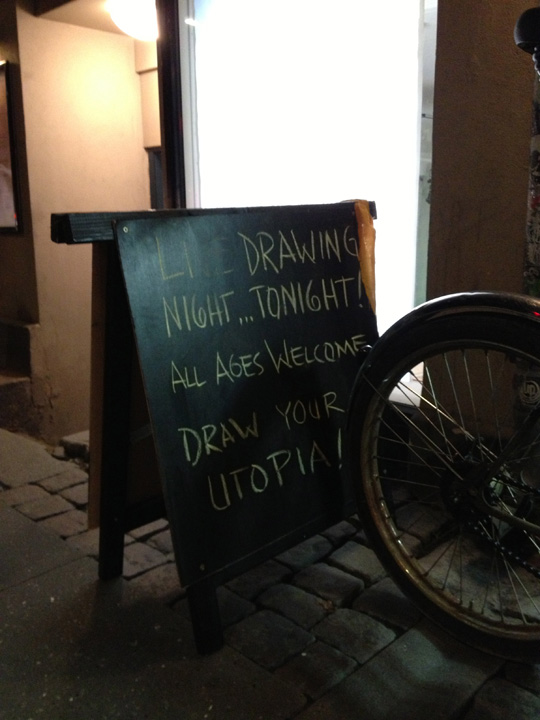 DRAWING
NIGHT...TONIGHT!
ALL AGES WELCOME
DRAW YOUR
UTOPIA!